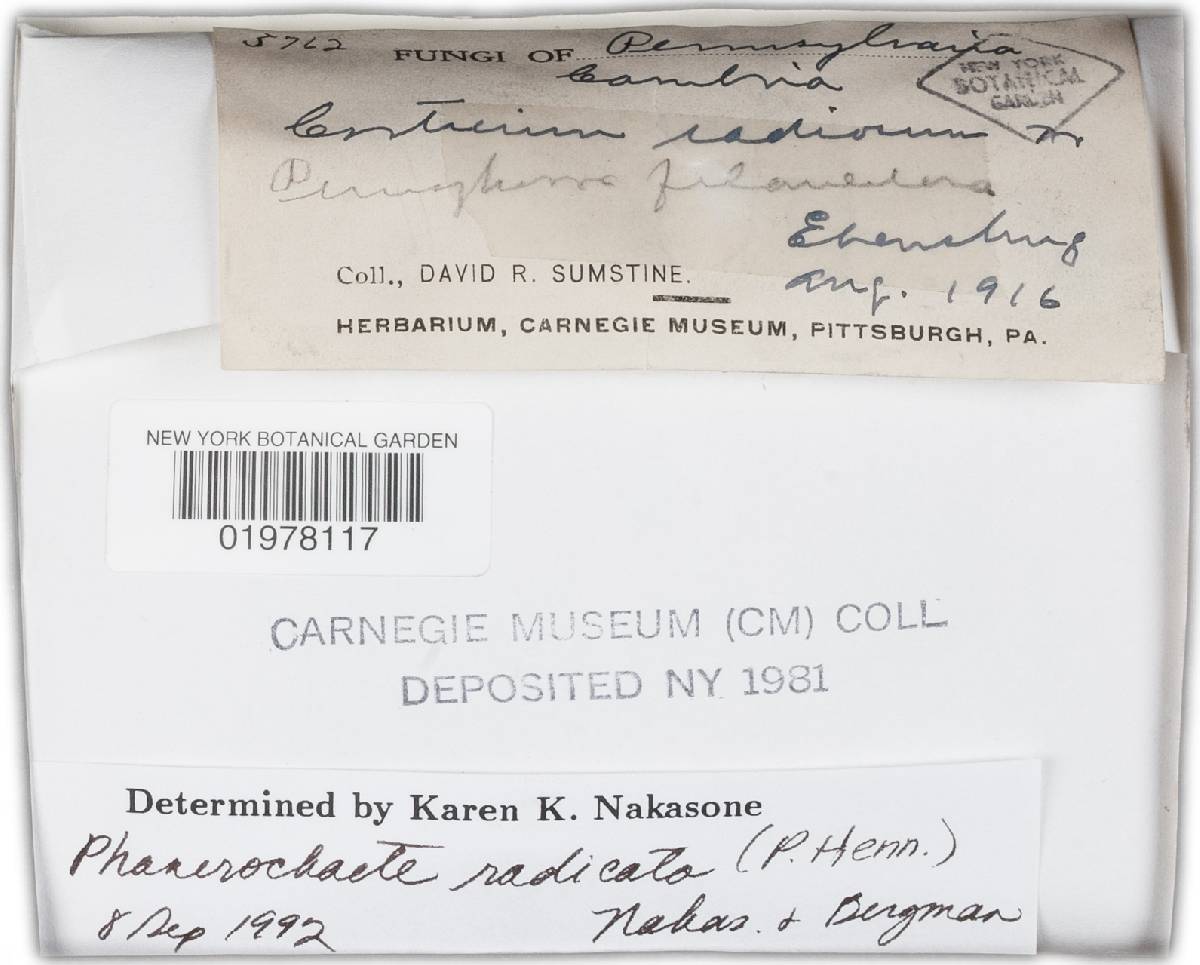 5762 FUNGI OF Pennsylvania
Cambria
NEW YORK
BOTANICAL
GARDEN
Corticium radiosum Fr
Peniophora filamentosa
Ebensburg
Coll., DAVID R. SUMSTINE.
Aug. 1916
HERBARIUM, CARNEGIE MUSEUM, PITTSBURGH, PA.
NEW YORK BOTANICAL GARDEN
01978117
CARNEGIE MUSEUM (CM) COLL
DEPOSITED NY 1981
Determined by Karen K. Nakasone
Phanerochaete radicata (P. Henn.)
8 Sep 1992 Nakas. & Bergman